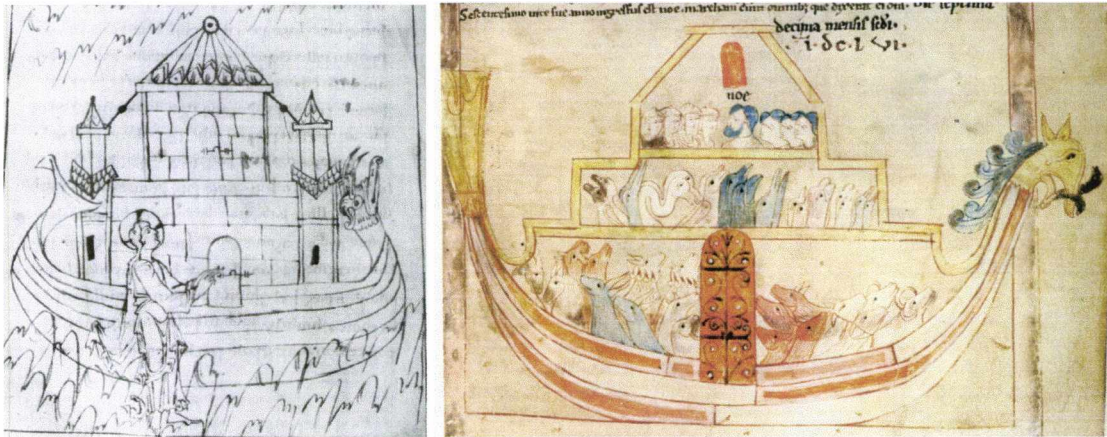 Sescentesimo vite sue anno ingressus est noe. in archam cum omnibꝫ que dixerat ei dn̄s. Die septima
decima mensis scđi.
·ī·dc·l·vi·
noe